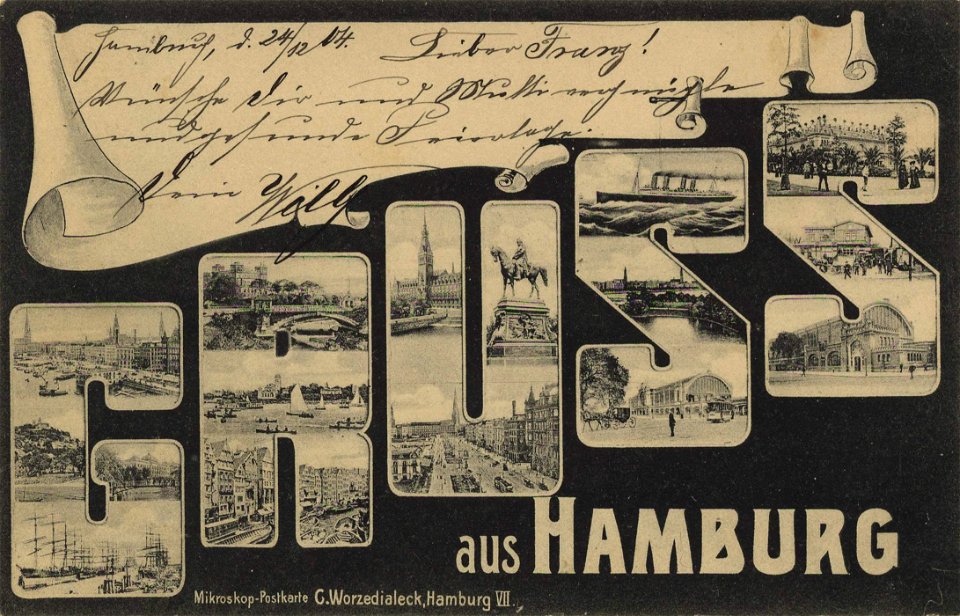 Hamburg, d. 24/12 04. Lieber Franz!
Wünsche Dir und Mutti vergnügte
und gesunde Feiertage.
Dein Willy
GRUSS
aus HAMBURG
Mikroskop-Postkarte C. Worzedialeck, Hamburg VIII.